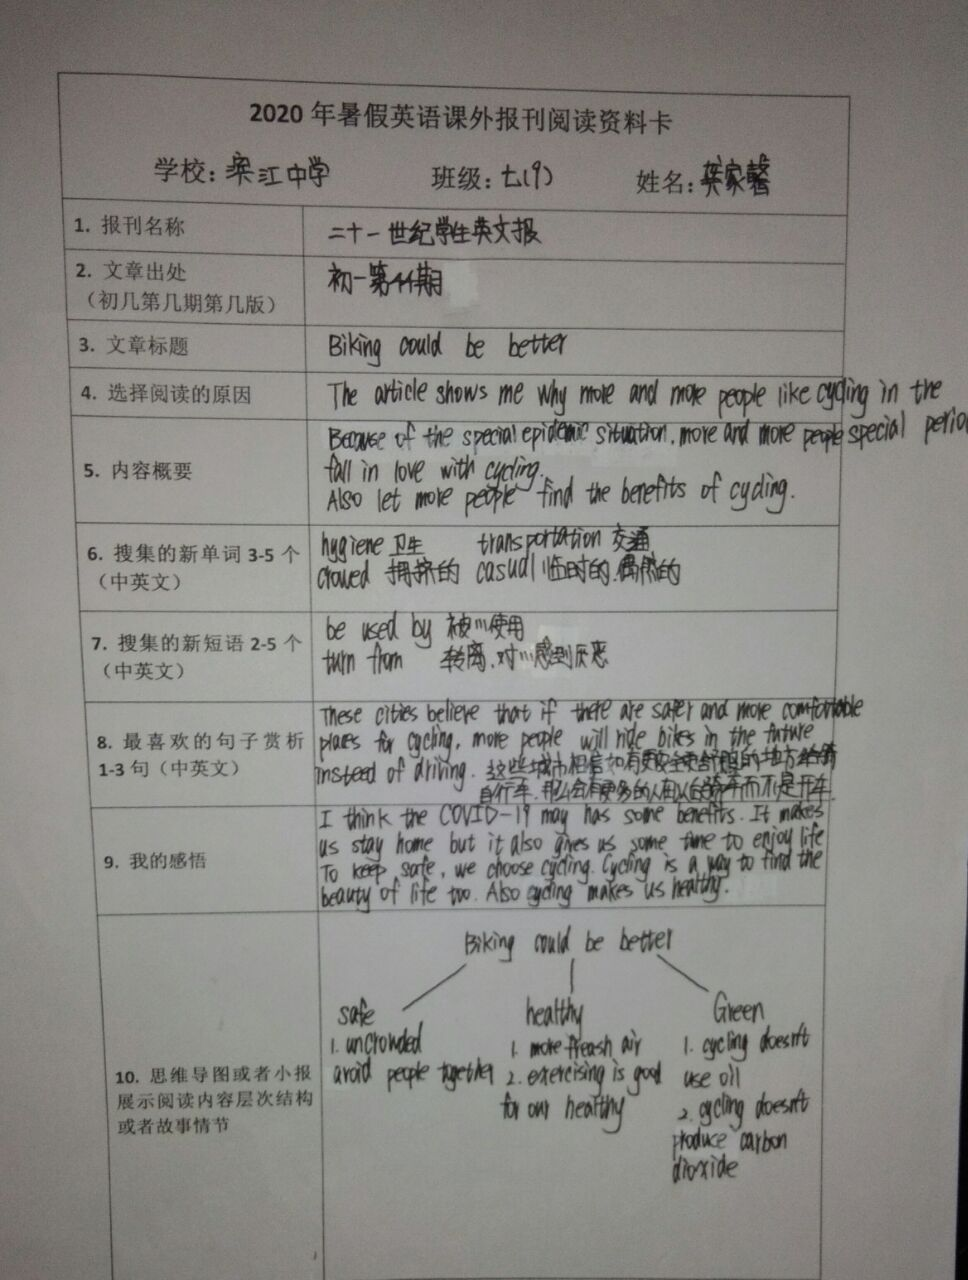 2020年暑假英语课外报刊阅读资料卡
学校: 滨江中学 班级: 七(9) 姓名: 家馨
1. 报刊名称 二十一世纪学生英文报
2. 文章出处 初一第44期
（初几第几期第几版）
3. 文章标题 Biking could be better
4. 选择阅读的原因 The article shows me why more and more people like cycling in the
special perio
5. 内容概要 Because of the special epidemic situation, more and more people
fall in love with cycling.
Also let more people find the benefits of cycling.
6. 搜集的新单词 3-5 个 hygiene 卫生 transportation 交通
（中英文） crowed 拥挤的 casual 临时的、偶然的
7. 搜集的新短语 2-5 个 be used by 被…使用
（中英文） turn from 转离、对…感到厌恶
8. 最喜欢的句子赏析 These cities believe that if there are safer and more comfortable
1-3 句（中英文） places for cycling, more people will ride bikes in the future
instead of driving. 这些城市相信如有更安全更舒服的地方给骑
自行车，那么会有更多的人以自骑车而不是开车
9. 我的感悟 I think the COVID-19 may has some benefits. It makes
us stay home but it also gives us some time to enjoy life
To keep safe, we choose cycling. Cycling is a way to find the
beauty of life too. Also cycling makes us healthy.
10. 思维导图或者小报
展示阅读内容层次结构
或者故事情节
Biking could be better
safe
1. uncrowded
avoid people together
healthy
1. more freash air
2. exercising is good
for our healthy
Green
1. cycling doesn't
use oil
2. cycling doesn't
produce carbon
dioxide